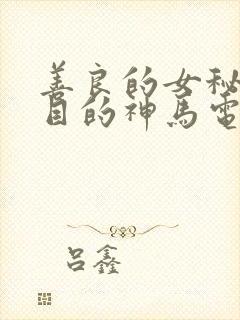 善良的女秘
目的神马电
吕鑫